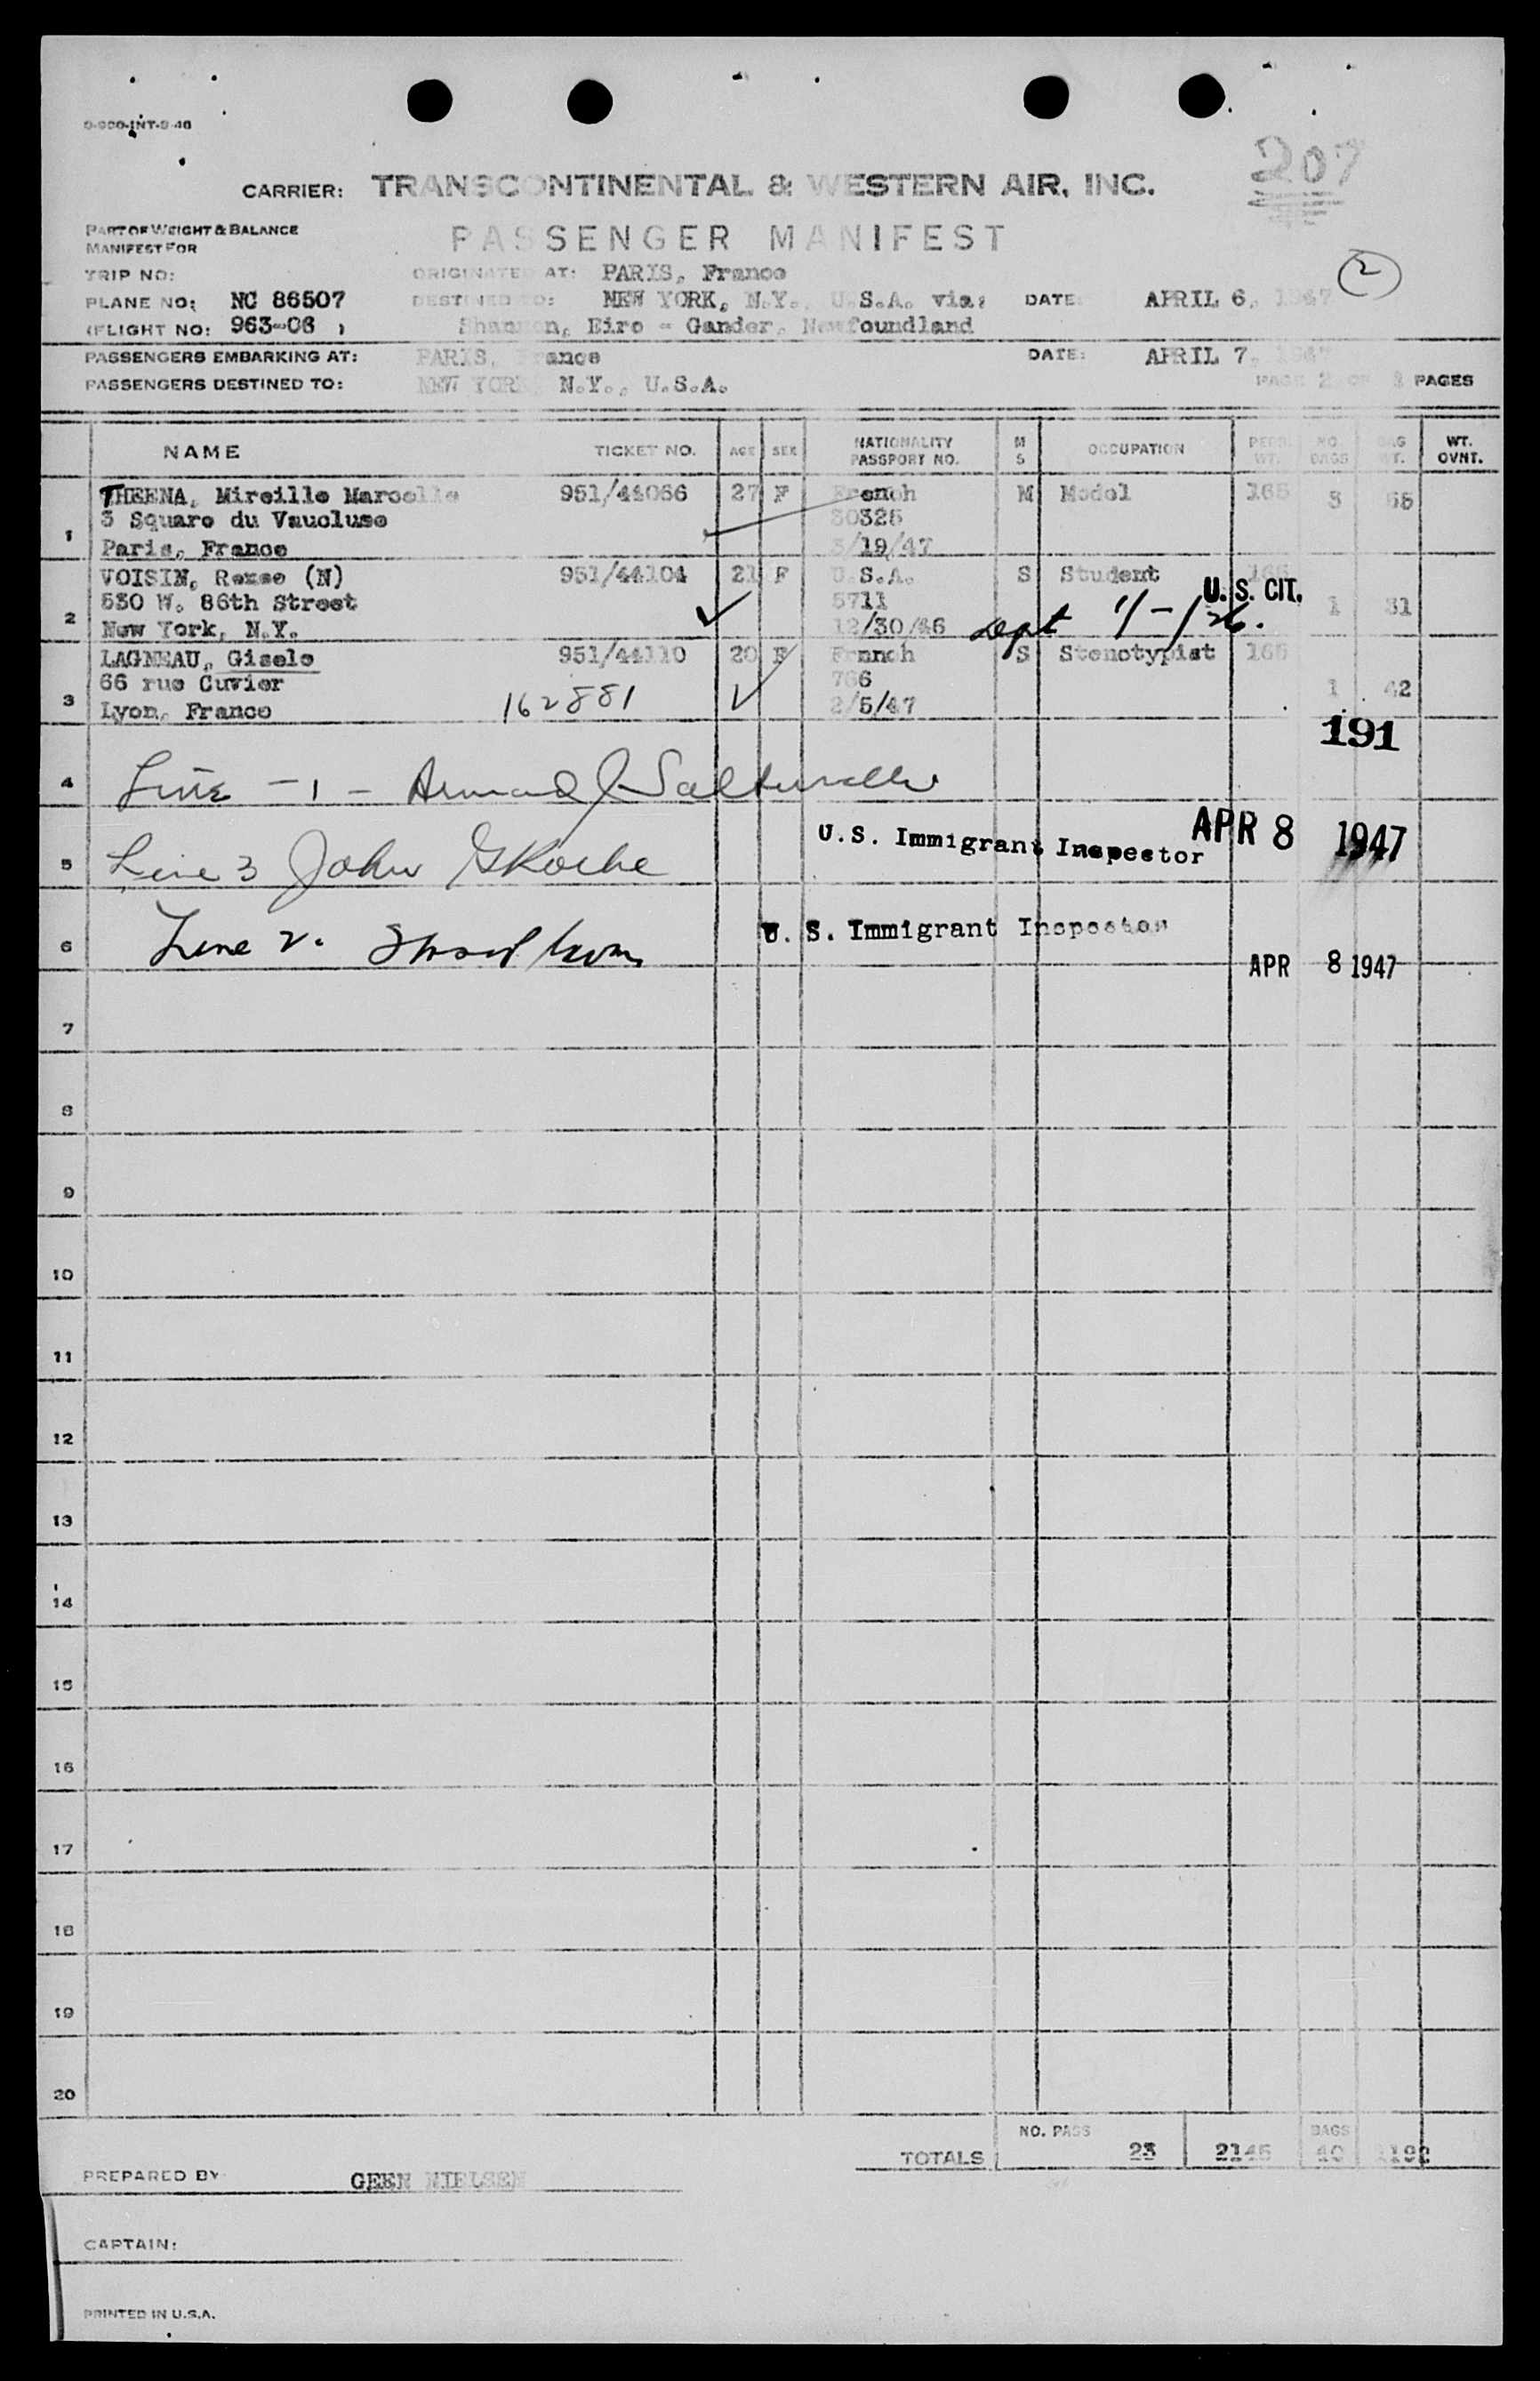 207
CARRIER: TRANSCONTINENTAL & WESTERN AIR, INC.
PART OF WEIGHT & BALANCE
MANIFEST FOR
PASSENGER MANIFEST
TRIP NO: ORIGINATED AT: PARIS, France
2
PLANE NO: NC 86507 DESTINED TO: NEW YORK, N.Y., U.S.A. via: DATE: APRIL 6, 1947
(FLIGHT NO: 963-06 ) Shannon, Eire - Gander, Newfoundland
PASSENGERS EMBARKING AT: PARIS, France DATE: APRIL 7, 1947
PASSENGERS DESTINED TO: NEW YORK, N.Y., U.S.A. PAGE 2 OF PAGES
NAME TICKET NO. AGE SEX NATIONALITY PASSPORT NO. M S OCCUPATION PERS. WT. NO. BAGS BAG WT. WT. OVNT.
THEENA, Mireille Marcelle 951/44066 27 F French M Model 165 3 55
3 Square du Vaucluse 30325
1 Paris, France 3/19/47
VOISIN, (N) 951/44104 21 F U.S.A. S Student 165
530 W. 86th Street 5711 U.S. CIT. 1 31
2 New York, N.Y. 12/30/46 Sept
LAGNEAU, Gisele 951/44110 20 F French S Stenotypist 165
66 rue Cuvier 766 1 42
3 Lyon, France 162881 2/5/47
191
4 Line - 1 - Armand J.
U.S. Immigrant Inspector APR 8 1947
5 Line 3 John
6 Line 2. U. S. Immigrant Inspector
APR 8 1947
7
8
9
10
11
12
13
14
15
16
17
18
19
20
TOTALS NO. PASS 23 2145 BAGS 40
PREPARED BY NIELSEN
CAPTAIN:
PRINTED IN U.S.A.